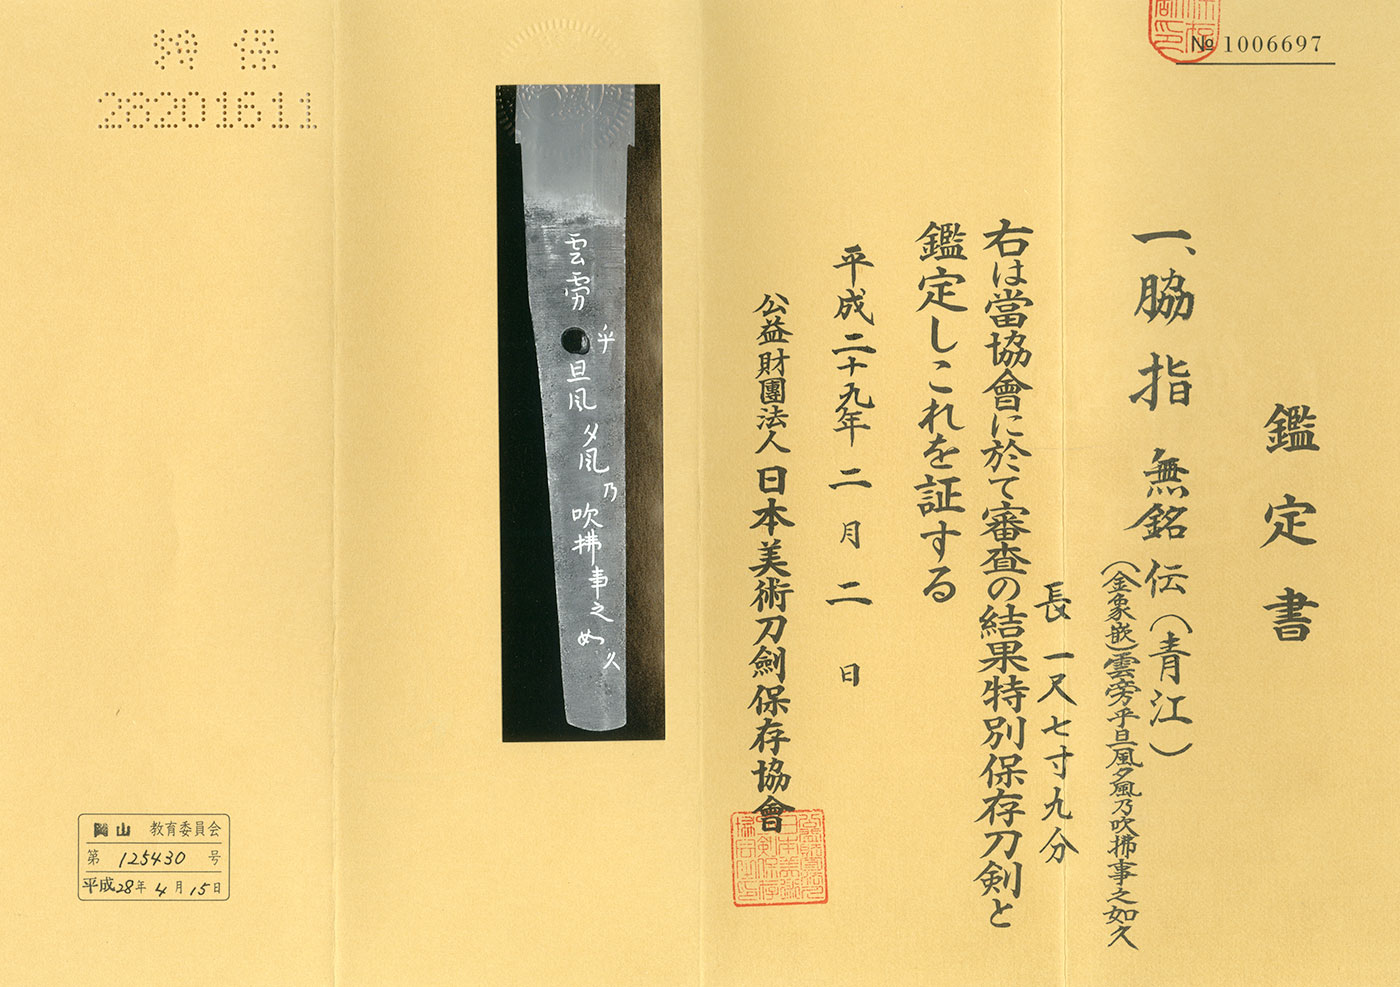 № 1006697
鑑定書
一、脇指 無銘 伝(青江)
(金象嵌)雲旁乎旦風夕風乃吹拂事之如久
長 一尺七寸九分
右は當協會に於て審査の結果特別保存刀剣と
鑑定しこれを証する
平成二十九年二月二日
公益財團法人 日本美術刀劍保存協會
雲旁
乎
旦風夕風
乃
吹拂事之如
久
特保
28201611
岡山 教育委員会
第 125430 号
平成28年4月15日